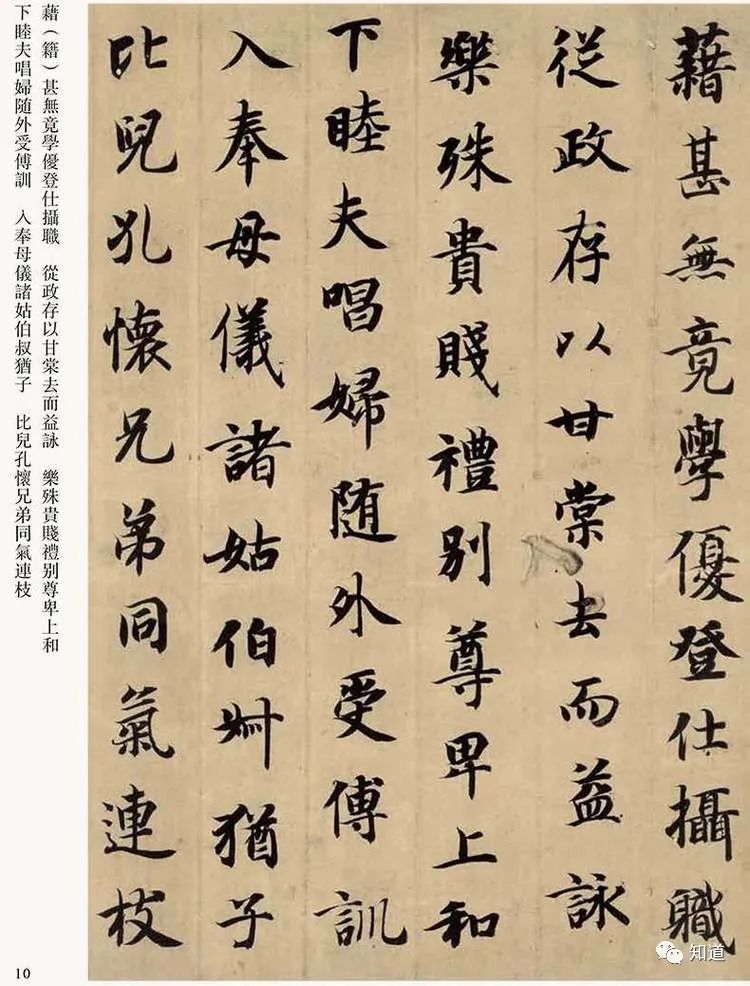 藉甚無竟學優登仕攝職
從政存以甘棠去而益詠
樂殊貴賤禮别尊卑上和
下睦夫唱婦随外受傅訓
入奉母儀諸姑伯叔猶子
比兒孔懷兄弟同氣連枝
藉（籍）甚無竟學優登仕攝職　從政存以甘棠去而益詠　樂殊貴賤禮别尊卑上和
下睦夫唱婦随外受傅訓　入奉母儀諸姑伯叔猶子　比兒孔懷兄弟同氣連枝
10
知道